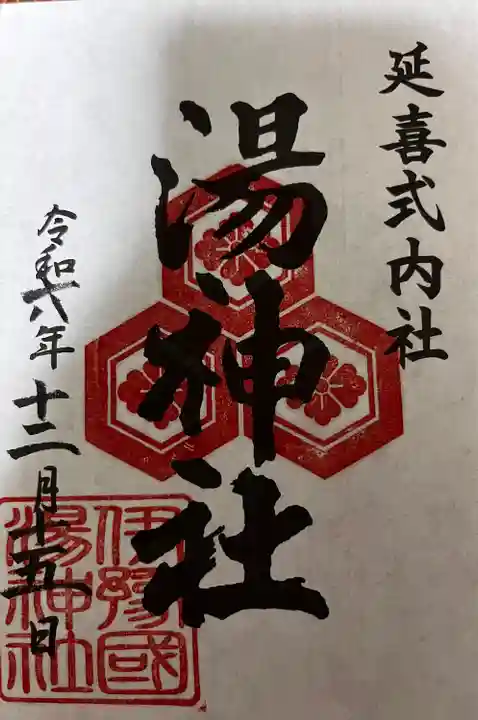 延喜式内社
湯神社
令和六年十二月十五日
伊豫國
湯神社